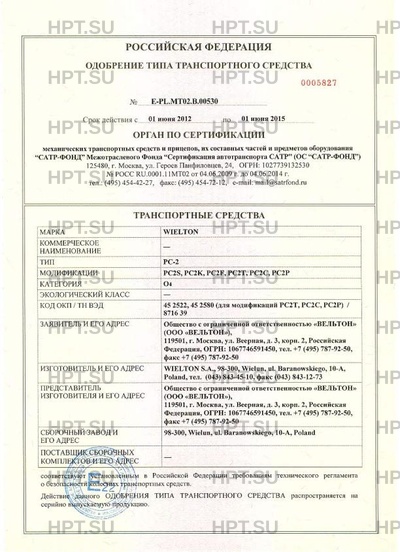 РОССИЙСКАЯ ФЕДЕРАЦИЯ
ОДОБРЕНИЕ ТИПА ТРАНСПОРТНОГО СРЕДСТВА
0005827
№ E-PL.MT02.B.00530
Срок действия с 01 июня 2012 по 01 июня 2015
ОРГАН ПО СЕРТИФИКАЦИИ
механических транспортных средств и прицепов, их составных частей и предметов оборудования
“САТР-ФОНД” Межотраслевого Фонда “Сертификация автотранспорта САТР” (ОС “САТР-ФОНД”)
125480, г. Москва, ул. Героев Панфиловцев, 24, ОГРН: 1027739132530
№ РОСС RU.0001.11МТ02 от 04.06.2009 г. до 04.06.2014 г.
тел.: (495) 454-42-27, факс: (495) 454-72-12, e-mail: mail@satrfond.ru
ТРАНСПОРТНЫЕ СРЕДСТВА
МАРКА WIELTON
КОММЕРЧЕСКОЕ
НАИМЕНОВАНИЕ —
ТИП PC-2
МОДИФИКАЦИИ PC2S, PC2K, PC2F, PC2T, PC2C, PC2P
КАТЕГОРИЯ O₄
ЭКОЛОГИЧЕСКИЙ КЛАСС —
КОД ОКП / ТН ВЭД 45 2522, 45 2580 (для модификаций PC2T, PC2C, PC2P) /
8716 39
ЗАЯВИТЕЛЬ И ЕГО АДРЕС Общество с ограниченной ответственностью «ВЕЛЬТОН»
(ООО «ВЕЛЬТОН»),
119501, г. Москва, ул. Веерная, д. 3, корп. 2, Российская
Федерация, ОГРН: 1067746591450, тел. +7 (495) 787-92-50,
факс +7 (495) 787-92-50
ИЗГОТОВИТЕЛЬ И ЕГО АДРЕС WIELTON S.A., 98-300, Wielun, ul. Baranowskiego, 10-A,
Poland, тел. (043) 843-45-10, факс (043) 843-12-73
ПРЕДСТАВИТЕЛЬ
ИЗГОТОВИТЕЛЯ И ЕГО АДРЕС Общество с ограниченной ответственностью «ВЕЛЬТОН»
(ООО «ВЕЛЬТОН»),
119501, г. Москва, ул. Веерная, д. 3, корп. 2, Российская
Федерация, ОГРН: 1067746591450, тел. +7 (495) 787-92-50,
факс +7 (495) 787-92-50
СБОРОЧНЫЙ ЗАВОД И
ЕГО АДРЕС 98-300, Wielun, ul. Baranowskiego, 10-A, Poland
ПОСТАВЩИК СБОРОЧНЫХ
КОМПЛЕКТОВ И ЕГО АДРЕС —
соответствуют установленным в Российской Федерации требованиям технического регламента
о безопасности колесных транспортных средств.
Действие данного ОДОБРЕНИЯ ТИПА ТРАНСПОРТНОГО СРЕДСТВА распространяется на
серийно выпускаемую продукцию.
HPT.SU